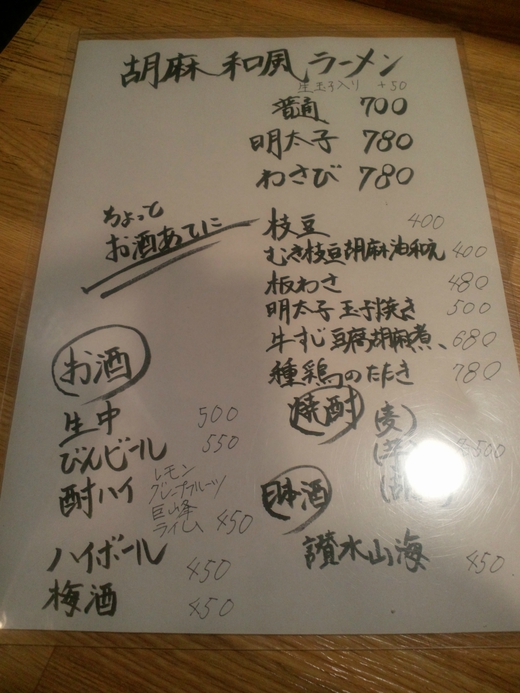 胡麻 和風 ラーメン
生玉子入り +50
普通 700
明太子 780
わさび 780
ちょっと
お酒あてに
枝豆 400
むき枝豆胡麻油和え 400
板わさ 480
明太子玉子焼き 500
牛すじ豆腐胡麻煮、 680
種鶏のたたき 780
お酒
生中 500
びんビール 550
酎ハイ レモン
グレープフルーツ
巨山峰
ライム 450
ハイボール 450
梅酒 450
焼酎 (麦)
500
日本酒
讃水山海 450